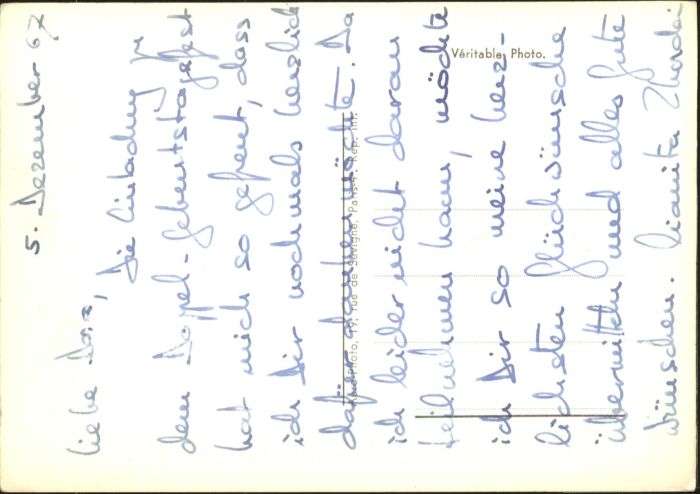 5. Dezember 67
Liebe Dora,
Die Einladung zu
dem Doppel-Geburtstagsfest
hat mich so gefreut, dass
ich Dir nochmals herzlich
dafür danken möchte. Da
ich leider nicht daran
teilnehmen kann, möchte
ich Dir so meine herz-
lichsten Glückwünsche
übermitteln und alles Gute
wünschen.
Véritable Photo.
Photo, rue de Sévigné, Paris